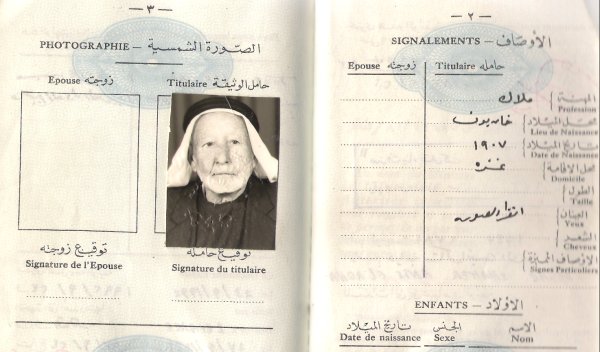 — ٢ —
SIGNALEMENTS — الأوصاف
Epouse زوجته Titulaire حامله
المهنة ملاك
Profession
محل الميلاد خان يونس
Lieu de Naissance
تاريخ الميلاد ١٩٠٧
Date de Naissance
محل الاقامة غزه
Domicile
الطول
Taille
العينان انظر الصوره
Yeux
الشعر
Cheveux
الأوصاف المميزة
Signes Particuliers
ENFANTS — الأولاد
الاسم الجنس تاريخ الميلاد
Date de naissance Sexe Nom
— ٣ —
PHOTOGRAPHIE — الصورة الشمسية
Epouse زوجته Titulaire حامل الوثيقة
توقيع زوجته توقيع حامله
Signature de l'Epouse Signature du titulaire